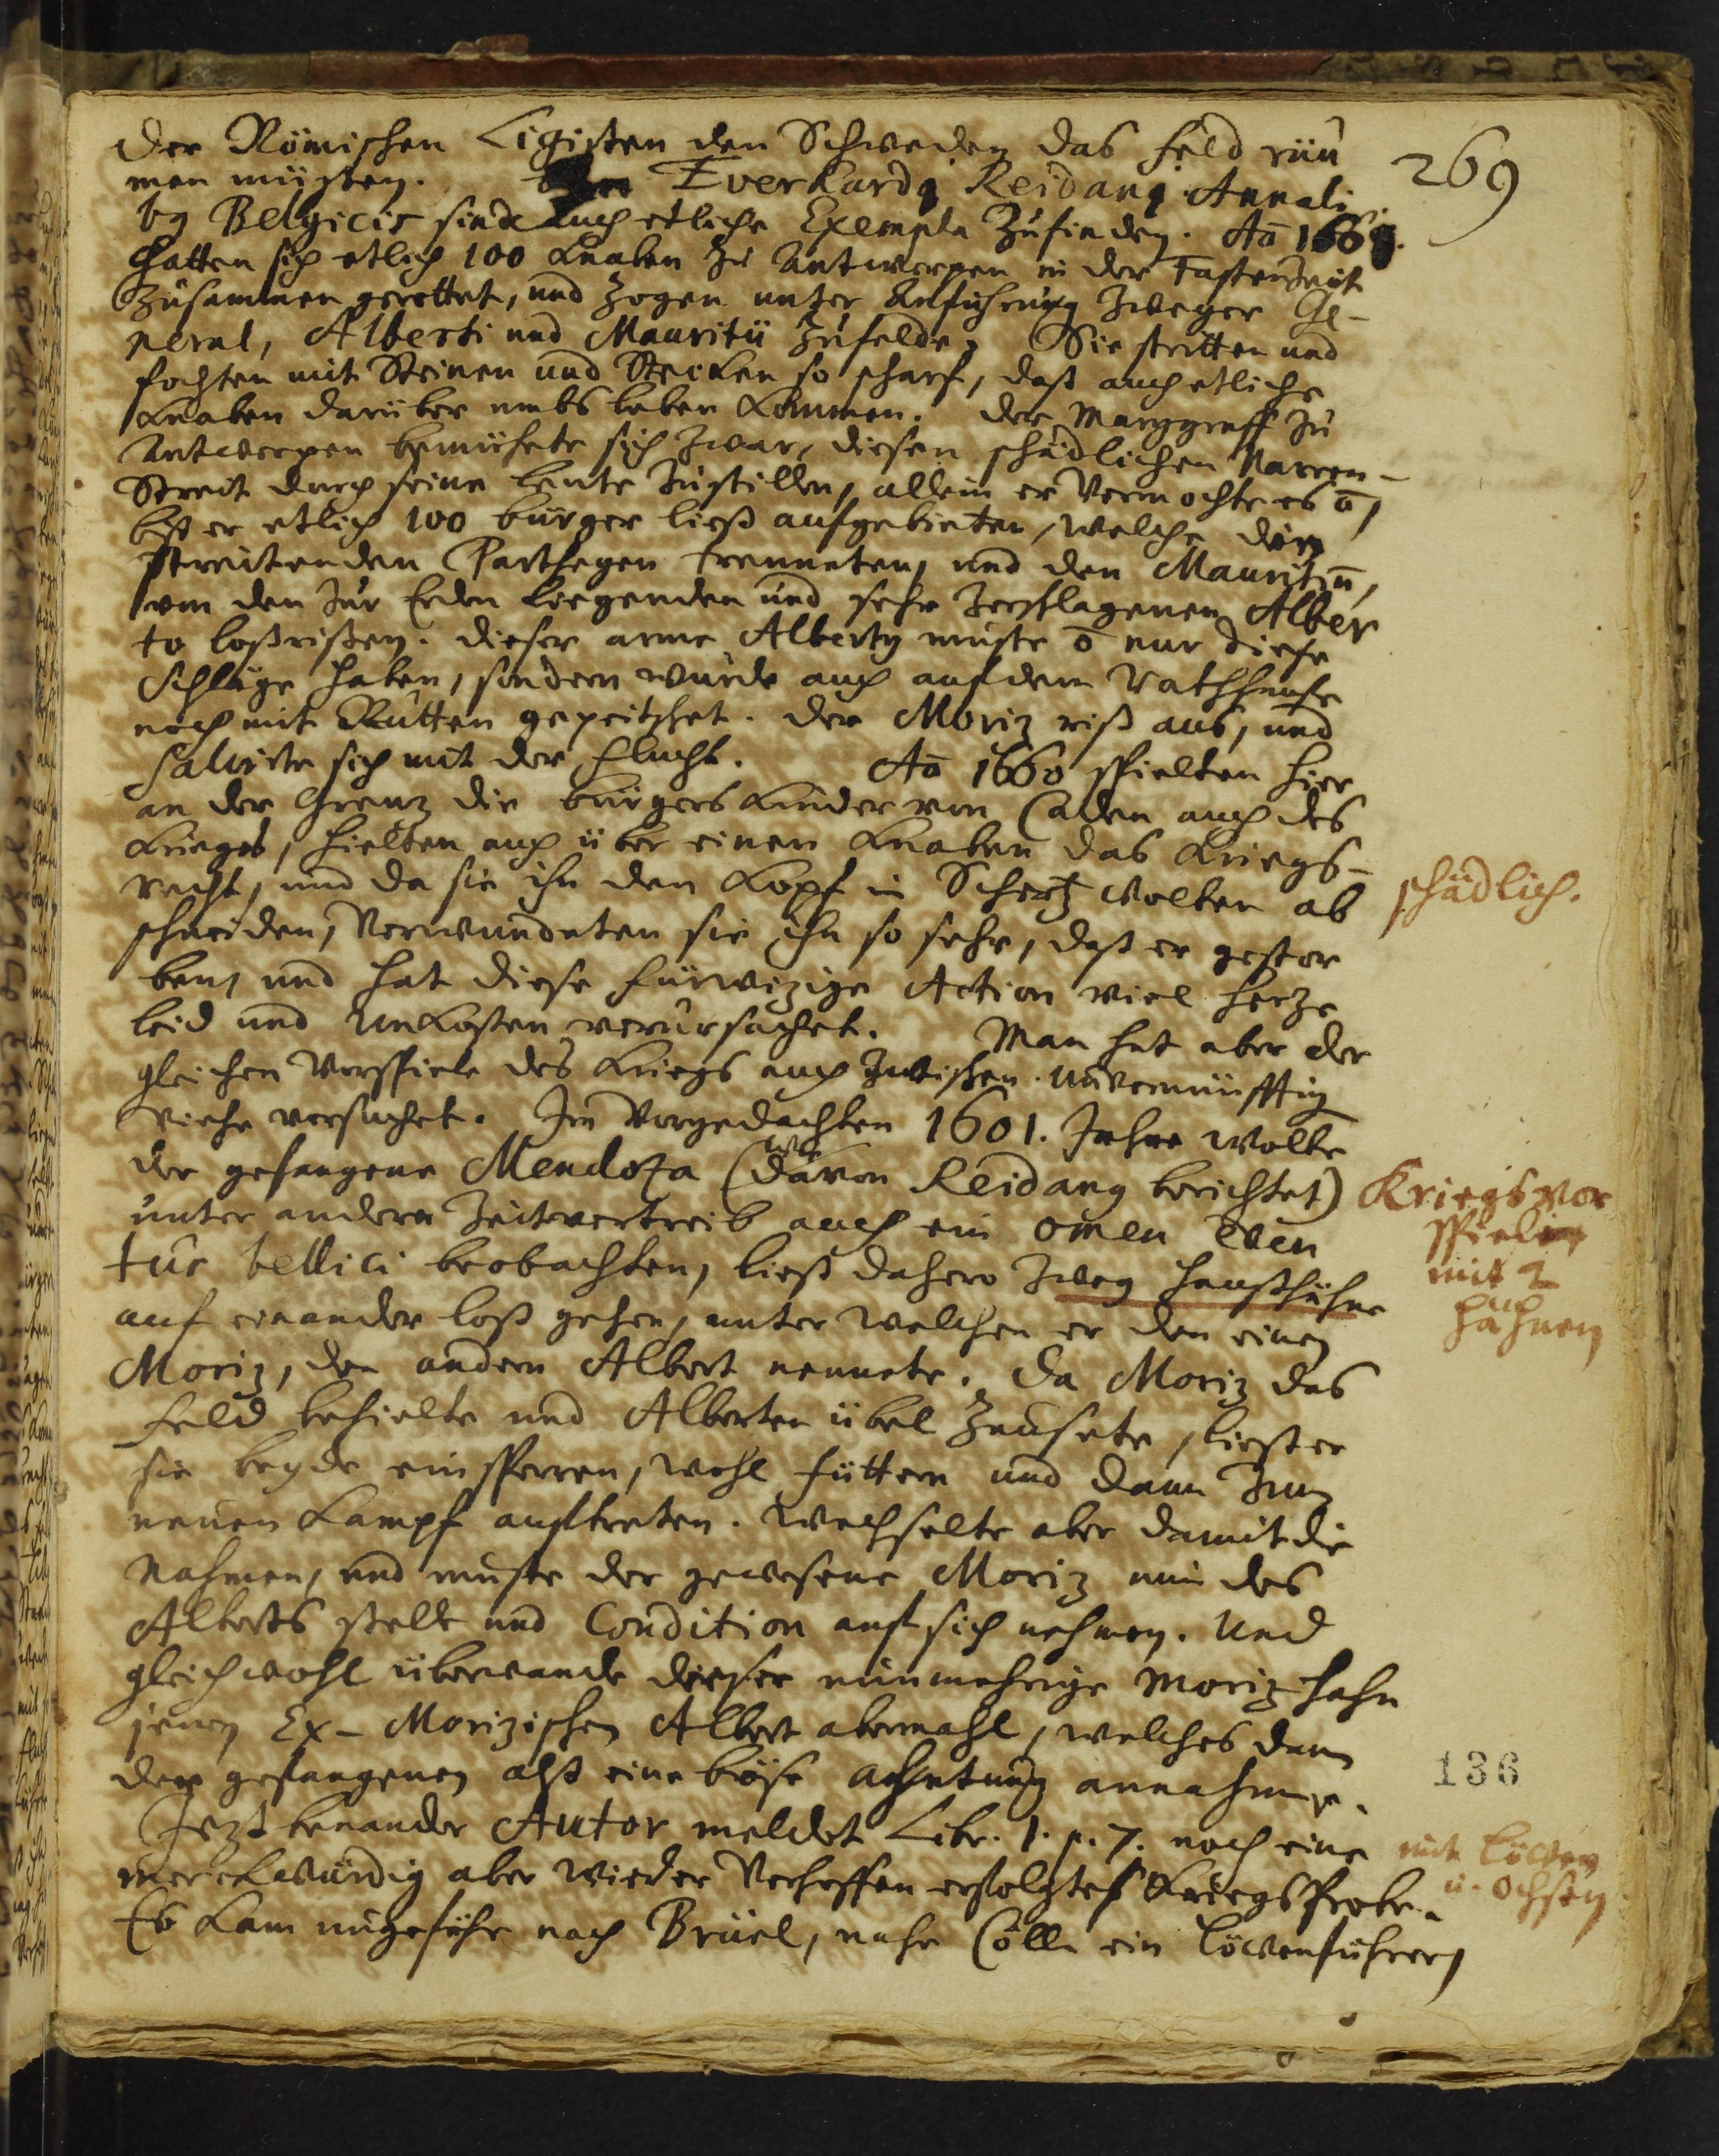 269
der Römischen Ligisten den Schweden das feld räu
men müsten. In Everhardq Reidanq Annali
bq Belgicis sind auch etliche Exempla zufinden. Aō 1601.
hatten sich etlich 100 Knaben zu Antwerpen in der Fastenzeit
zusammen gerottet, und zogen unter Anführung zweyer Ge-
neral, Alberti und Mauritii zufelde. Sie stritten und
fochten mit Steinen und Stecken so scharf, daß auch etliche
Knaben darüber umbs leben kommen. Der Marggraff zu
Antwerpen bemühete sich zwar, diesen schädlichen Narren-
Streit durch seine leute zustillen, allein er vermochte es ō,
biß er etlich 100 bürger ließ aufgebieten, welche die
streitenden Partheyen trenneten, und den Mauritiū,
von den zur Erden liegenden und sehr zerschlagenen Alber
to loßrißen. Dieser arme Albertq muste ō nur diese
Schläge haben, sondern wurde auch auf dem Rathhause
noch mit Rutten gepeitschet. Der Moriz riß aus, und
salvirte sich mit der flucht. Aō 1660 spielten hier
an der Grenz die bürgers Kinder von Caden auch des
Krieges, hielten auch über einen Knaben das Kriegs-
recht, und da sie ihn den Kopf in Schertz wolten ab
schneiden, verwundeten sie ihn so sehr, daß er gestor
ben, und hat diese fürwizige Action viel herze
leid und Unkosten verursachet. Man hat aber der
schädlich.
gleichen Vorspiele des Kriegs auch zwischen unvernünfftig
viehe versuchet. Im vorgedachten 1601. Jahre wolte
der gefangene Mendoza (wie davon Reidanq berichtet)
unter andern Zeitvertreib auch ein omen even
tus bellici beobachten, ließ dahero zwey haußhühne
auf einander loß gehen, unter welchen er den einen
Kriegs vor
spiele
mit 2
hähnen
Moriz, den andern Albert nennete. Da Moriz das
feld behielte und Alberten übel zausete, ließ er
sie beyde einsperren, wohl füttern und dann zum
neuen Kampf aufftreten. Wechselte aber damit die
Nahmen, und muste der gewesene Moriz nun des
Alberts stelle und Condition auf sich nehmen. Und
gleichwohl überwande dieser nunmehrige Moriz hahn
jenen Ex-Morizischen Albert abermahl, welches dann
der gefangenen alß eine böse achtung annahme.
136
Jezt benander Autor meldet Libr. 1. p. 7. noch eine
merckwürdig aber wieder Verhoffen erfolgtes Kriegs Probe.
mit Löwen
u. Ochsen
Es kam ungefehr nach Brüel, nahe Cölln ein Löwenführer,